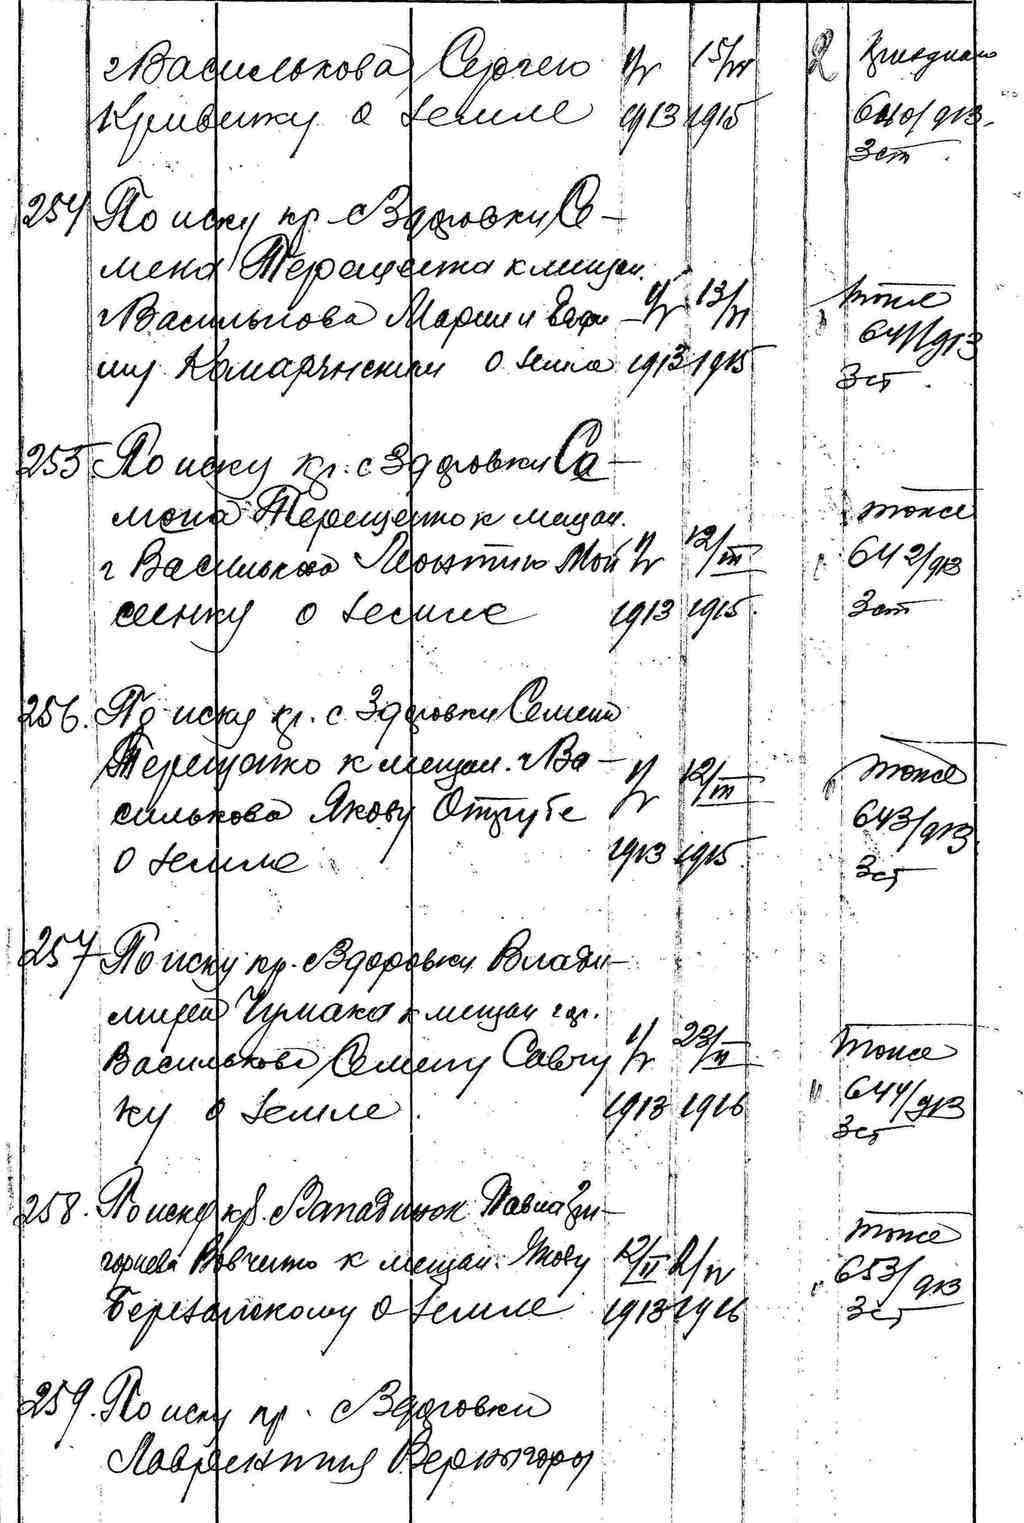 г Василькова Сергею 1/V 15/IV 2
Кривенку о земле 1913 1915 640/913.
3 ст
254 По иску кр. с Здоровки Се-
мена Терещенка к мещан.
г Василькова Марии и Евфи-
мию Комарчнским о земле 1913 1915
тоже
641/913
3 ст.
255 По иску кр. с Здоровки Се-
мена Терещенко к мещан.
г Василькова Леонтию Мои-
сеенку о земле 1/V 12/III
1913 1915.
тоже
642/913
3 ст
256. По иску кр. с Здоровки Семена
Терещенко к мещан. г Ва-
силькова Якову Отрубе
о земле 1/V 12/III
1913 1915.
тоже
643/913
3 ст
257 По иску кр. с Здоровки Влади-
мира Чумака к мещан гор.
Василькова Семену Савчу
ку о земле. 1/V 23/II
1913 1916
тоже
" 644/913
3 ст
258. По иску кр. с Западинок Павла Гри-
горьева Вовченко к мещан. Якову 12/II
Березанскому о земле 1913 1916
тоже
" 653/913
3 ст
259. По иску кр. с Здоровки
Лаврентия Вернигоры